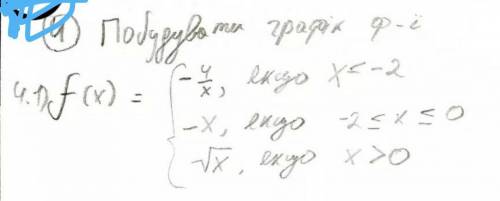 ① Побудувати графік ф-ї
4.1) f(x) = { -4/x, якщо x ≤ -2
-x, якщо -2 ≤ x ≤ 0
√x, якщо x > 0